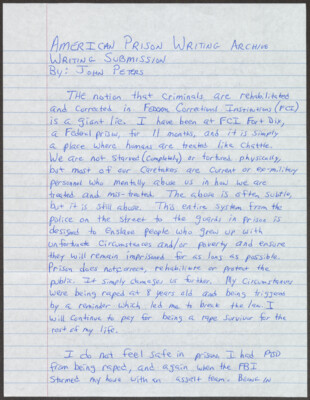 AMERICAN PRISON WRITING ARCHIVE
WRITING SUBMISSION
By: JOHN PETERS
THE notion that criminals are rehabilitated
and corrected in FEDERAL Correctional Institutions (FCI)
is a giant lie. I have been at FCI Fort Dix,
a Federal prison, for 11 months, and it is simply
a place where humans are treated like Chattle.
We are not starved (completely) or tortured physically,
but most of our Caretakers are current or ex-military
personel who mentally abuse us in how we are
treated and mis-treated. The abuse is often subtle,
but it is still abuse. This entire system from the
police on the street to the guards in prison is
designed to enslave people who grew up with
unfortunate circumstances and/or poverty and ensure
they will remain imprisoned for as long as possible.
Prison does not correct, rehabilitate or protect the
public. It simply damages us further. My circumstances
were being raped at 8 years old and being triggered
by a reminder which led me to break the law. I
will continue to pay for being a rape survivor for the
rest of my life.
I do not feel safe in prison. I had PTSD
from being raped, and again when the FBI
stormed my house with an assault team. Being in